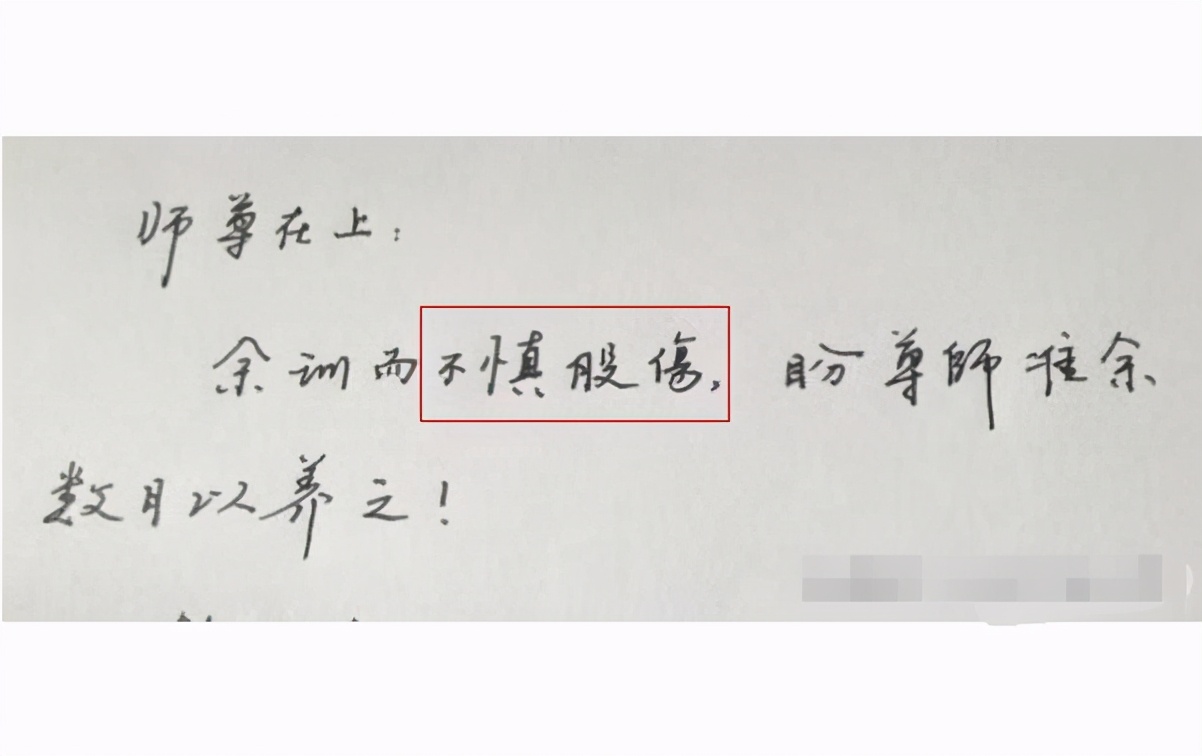 师尊在上：
余训而不慎股傷，盼尊師准余
数月以养之！